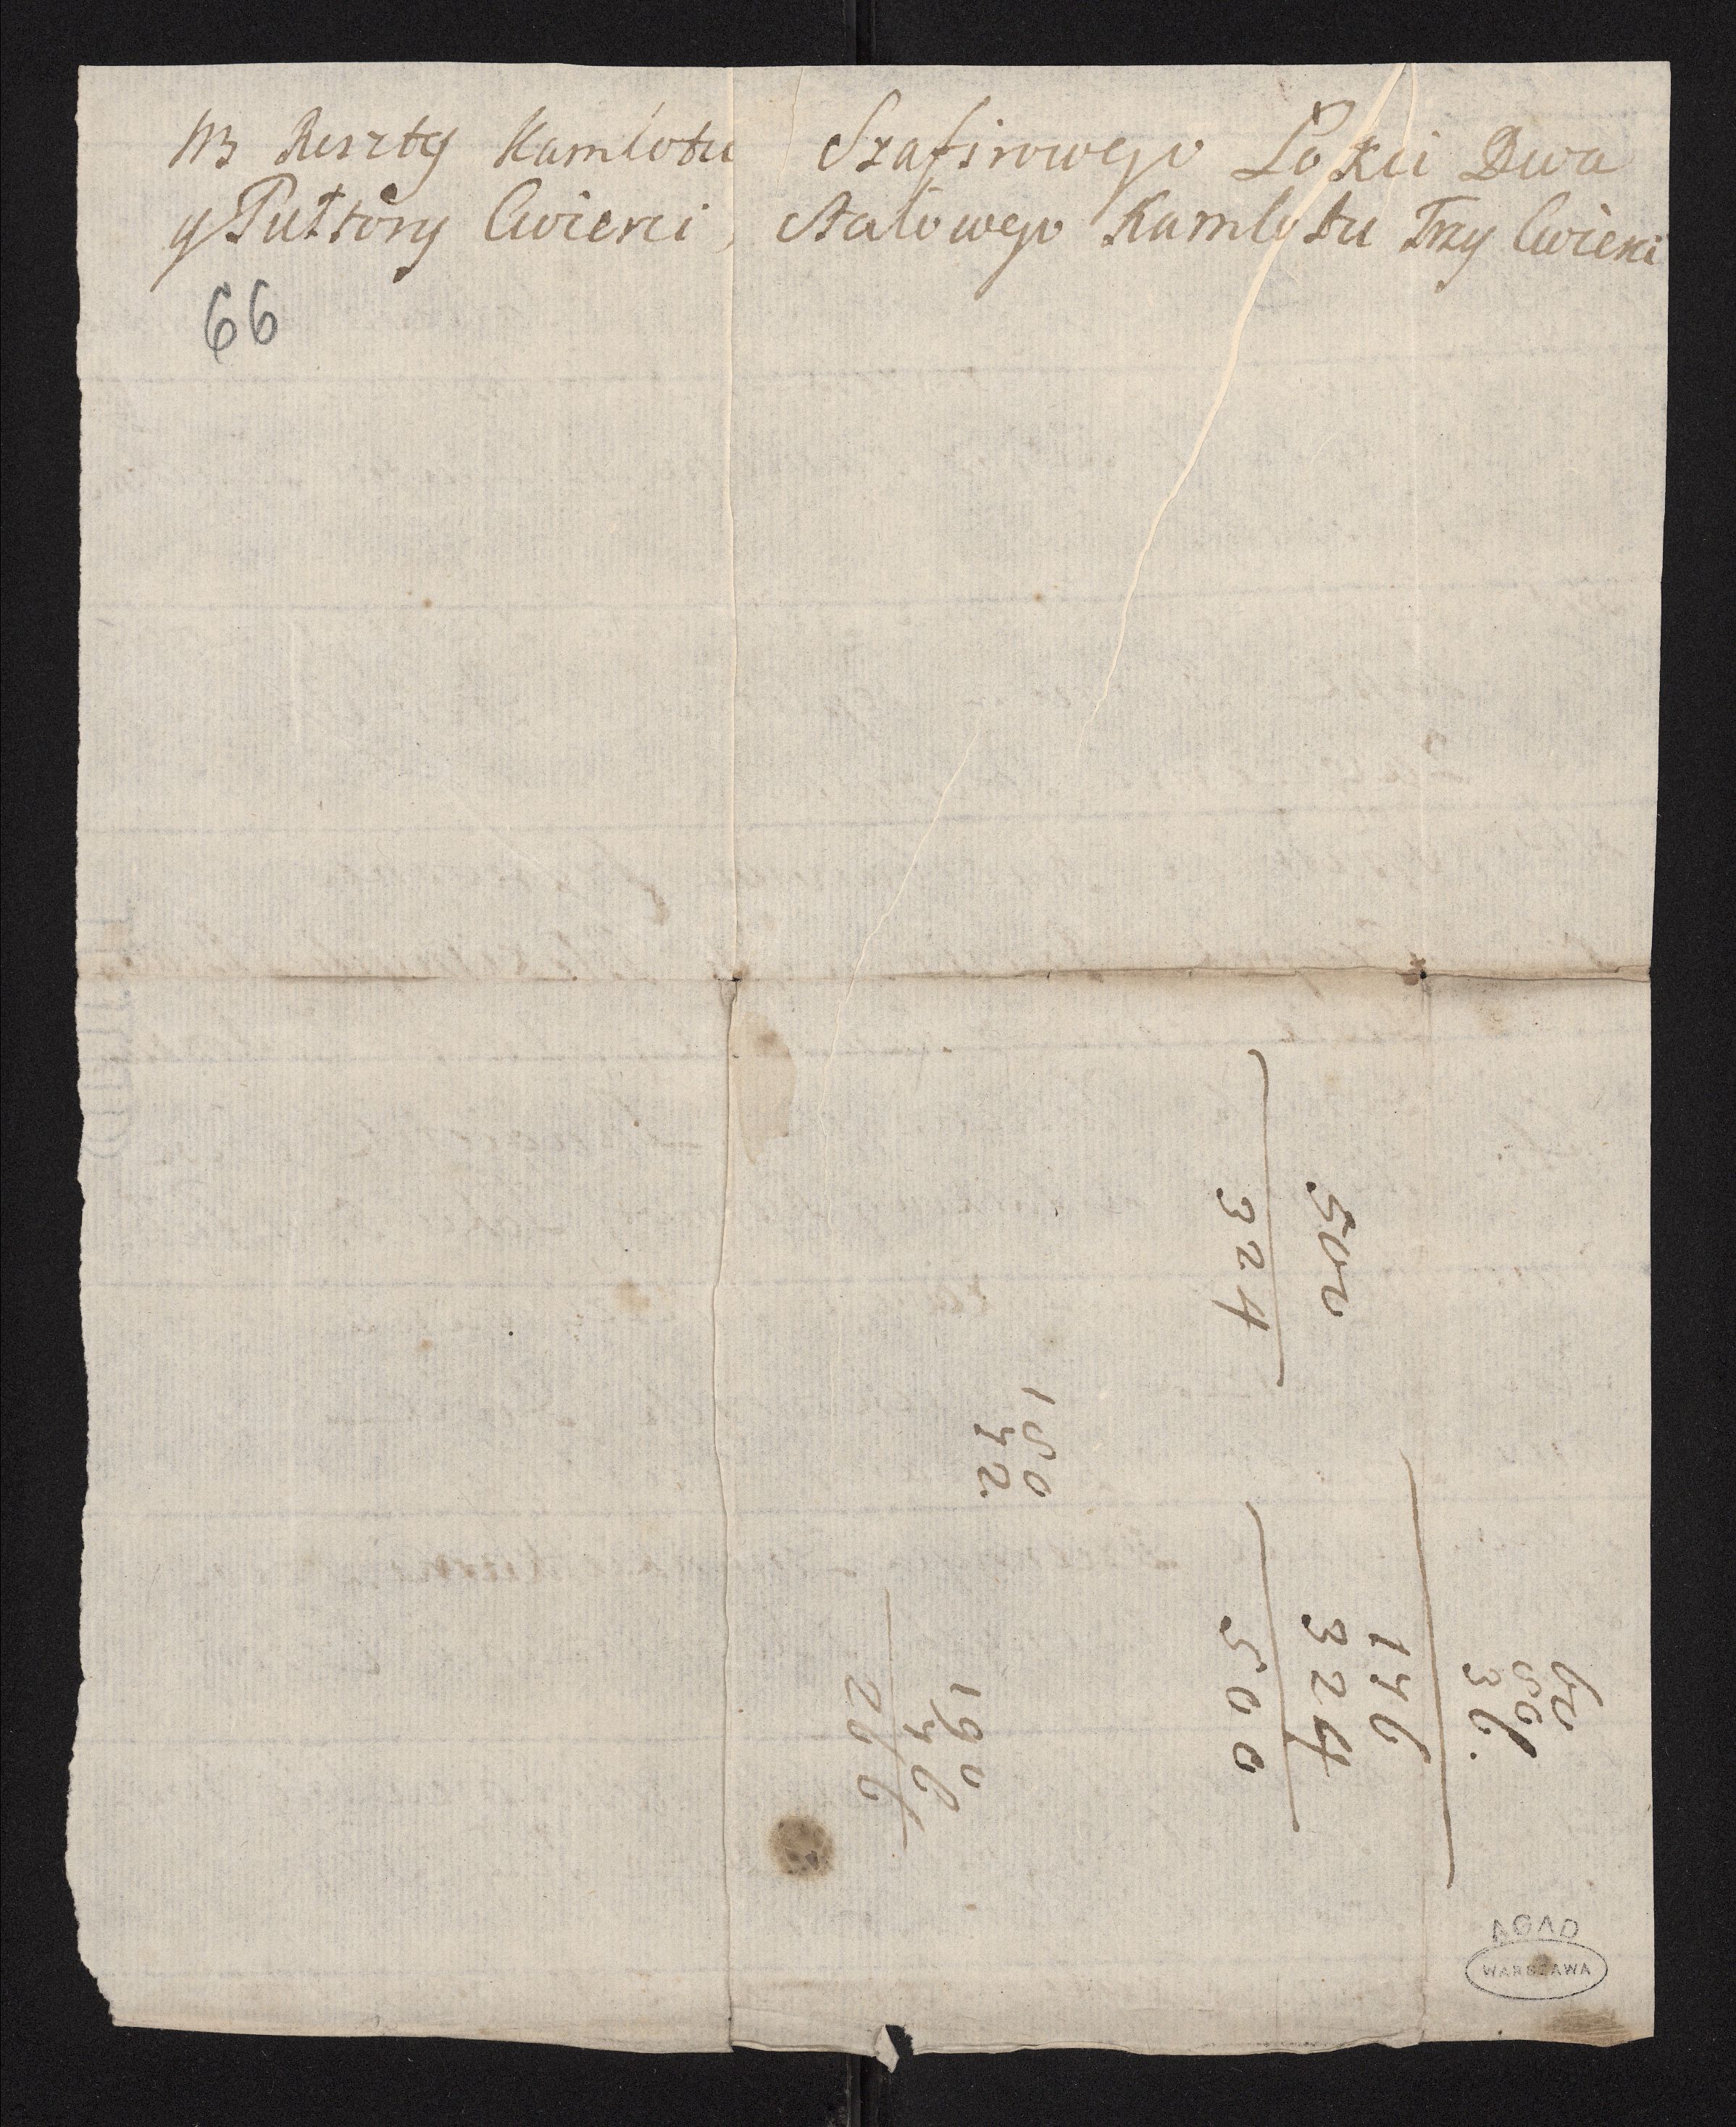 NB Reszty Kamlotu Szafirowego Łokci Dwa
y Pułtory Cwierci, Stalowego Kamlotu Trzy Cwierci
66
500
324
150
72.
36.
176
324
500
190
76
266
AGAD
WARSZAWA